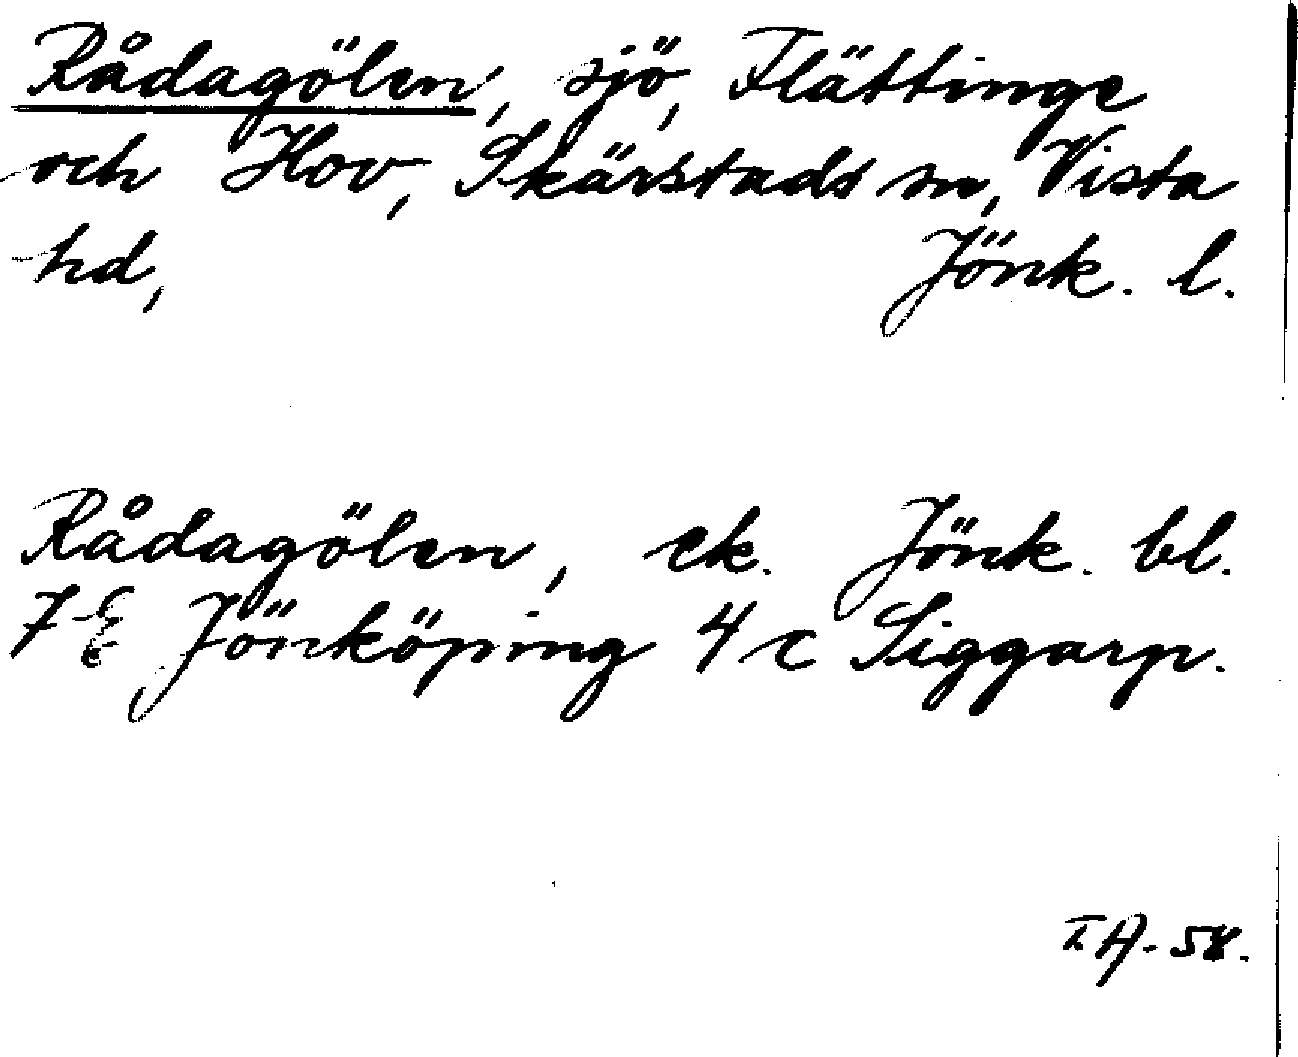 Rådagölen, sjö, Flättinge
och Hov, Skärstads sn, Vista
hd, Jönk. l.
Rådagölen, ek. Jönk. bl.
7 E Jönköping 4 c Siggarp.
I A. 58.